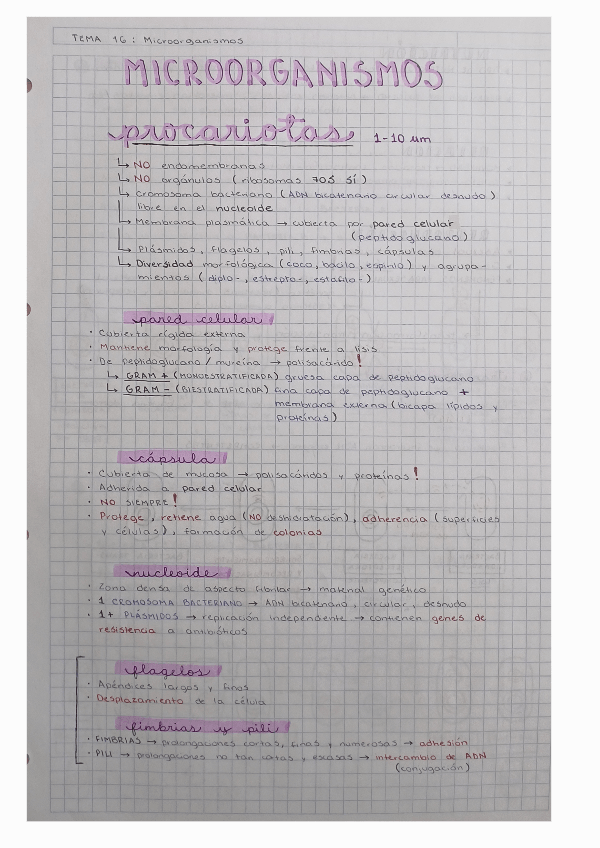 TEMA 16: Microorganismos
MICROORGANISMOS
procariotas 1-10 um
↳ NO endomembranas
↳ NO orgánulos (ribosomas 70S SÍ)
↳ Cromosoma bacteriano (ADN bicatenario circular desnudo)
libre en el nucleoide
↳ Membrana plasmática → cubierta por pared celular
(peptidoglucano)
↳ Plásmidos, flagelos, pili, fimbrias, cápsulas
↳ Diversidad morfológica (coco, bacilo, espirilo) y agrupa-
mientos (diplo-, estrepto-, estafilo-)
pared celular
· Cubierta rígida externa
· Mantiene morfología y protege frente a lisis
· De peptidoglucano/mureína → polisacárido!
↳ GRAM + (MONOESTRATIFICADA) gruesa capa de peptidoglucano
↳ GRAM - (BIESTRATIFICADA) fina capa de peptidoglucano +
membrana externa (bicapa lípidos y
proteínas)
cápsula
· Cubierta de mucosa → polisacáridos y proteínas!
· Adherida a pared celular
· NO SIEMPRE!
· Protege, retiene agua (NO deshidratación), adherencia (superficies
y células), formación de colonias
nucleoide
· Zona densa de aspecto fibrilar → material genético
· 1 CROMOSOMA BACTERIANO → ADN bicatenario, circular, desnudo
· 1+ PLÁSMIDOS → replicación independiente → contienen genes de
resistencia a antibióticos
flagelos
· Apéndices largos y finos
· Desplazamiento de la célula
fimbrias y pili
· FIMBRIAS → prolongaciones cortas, finas y numerosas → adhesión
· PILI → prolongaciones no tan cortas y escasas → intercambio de ADN
(conjugación)